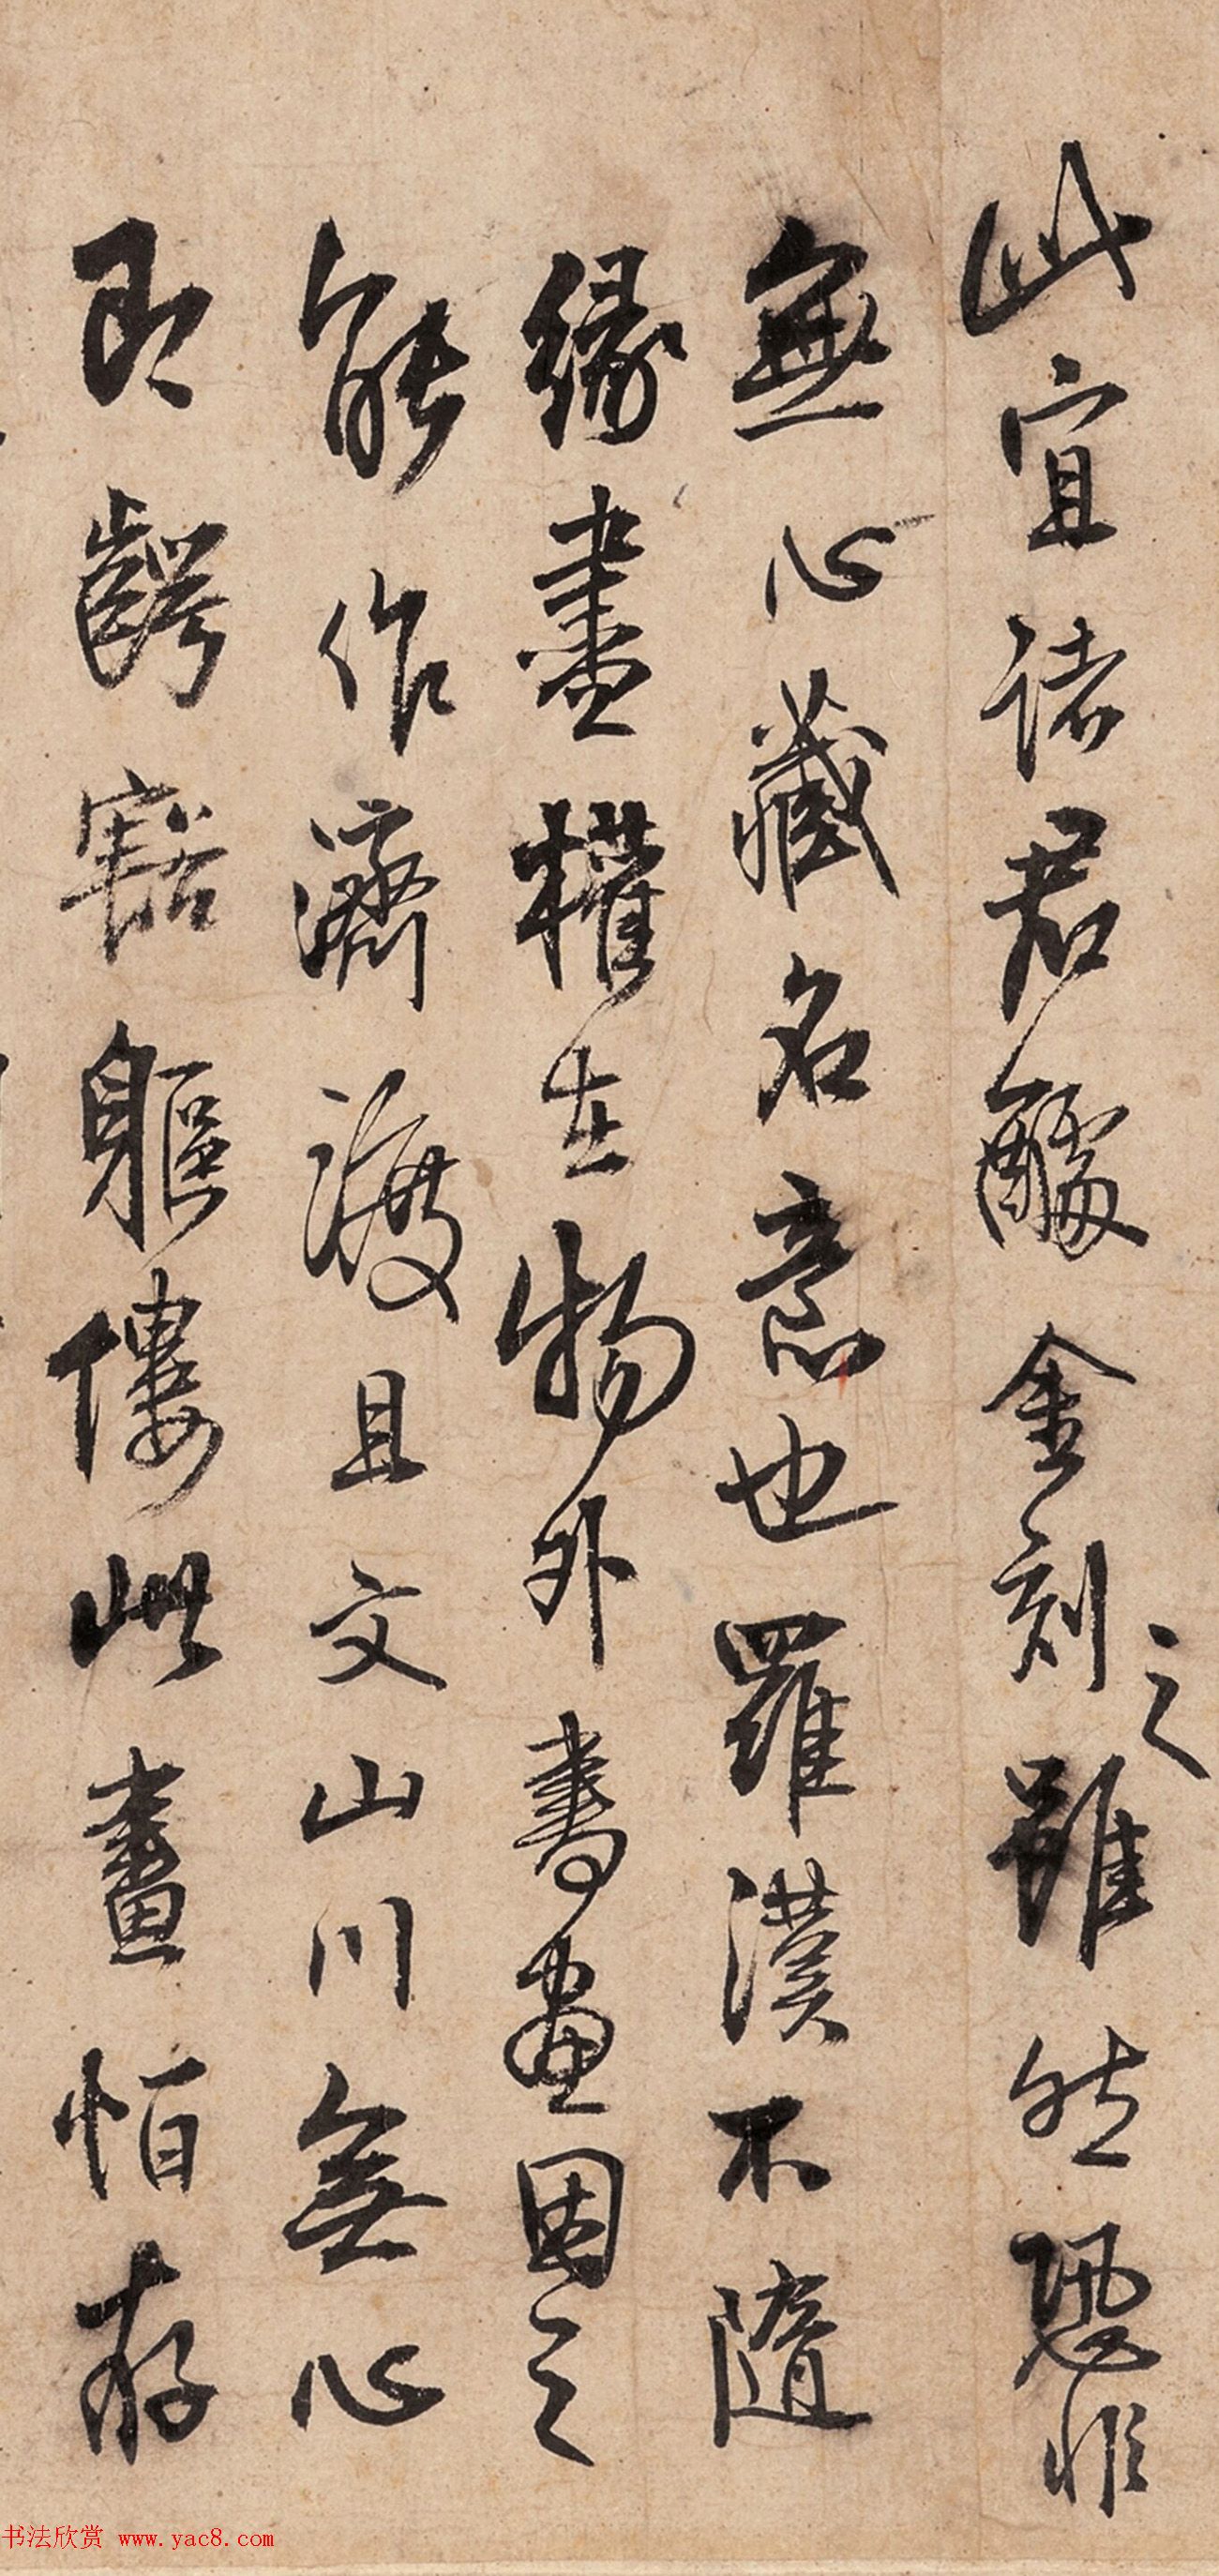 此宜諸君醵金刻之雖然恐非
無心藏名意也羅漢不隨
緣盡權在物外書畫因之
能作濟渡且文山川無心
即齶豁軀僂此畫恒存
书法欣赏 www.yac8.com